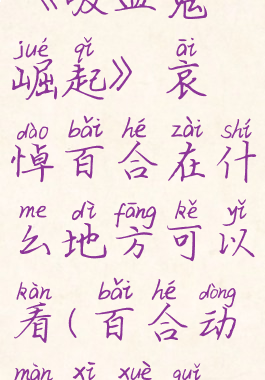 《吸血鬼
jué qǐ āi
崛起》 哀
dào bǎi hé zài shí
悼百合在什
me dì fāng kě yǐ
么地方可以
kàn bǎi hé dòng
看（百合动
màn xī xuè guǐ